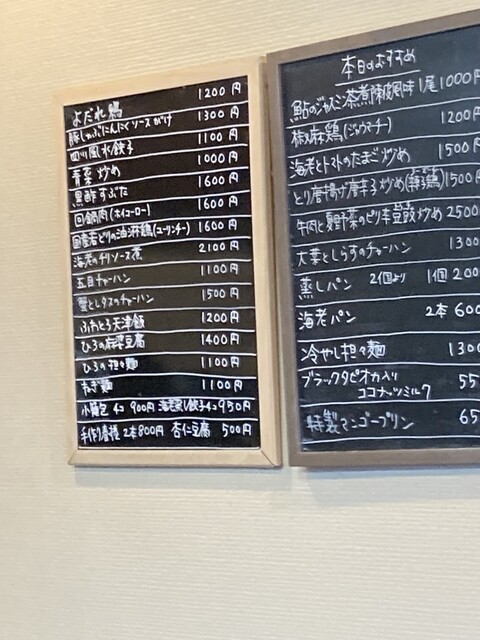 よだれ鶏 1200円
豚しゃぶにんにくソースがけ 1300円
四川風水餃子 1100円
青菜炒め 1000円
黒酢すぶた 1600円
回鍋肉(ホイコーロー) 1600円
国産若どりの油淋鶏(ユーリンチー) 1600円
海老のチリソース煮 2100円
五目チャーハン 1100円
蟹とレタスのチャーハン 1500円
ふわとろ天津飯 1200円
ひろの麻婆豆腐 1400円
ひろの担々麺 1100円
ねぎ麺 1100円
小籠包 4コ 900円 海老蒸し餃子4コ 950円
手作り春捲 2本800円 杏仁豆腐 500円
本日のおすすめ
鮎のジャスミン茶煮陳皮風味 1尾 1000円
椒麻鶏(ジョウマーチー) 1200
海老とトマトのたまご炒め 1500
とり唐揚げ唐辛子炒め(辣子鶏) 1500
牛肉と夏野菜のピリ辛豆豉炒め 2500
大葉としらすのチャーハン 1300
蒸しパン 2個より 1個 200
海老パン 2本 600
冷やし担々麺 1300
ブラックタピオカ入り 55
ココナッツミルク
特製マンゴープリン 65